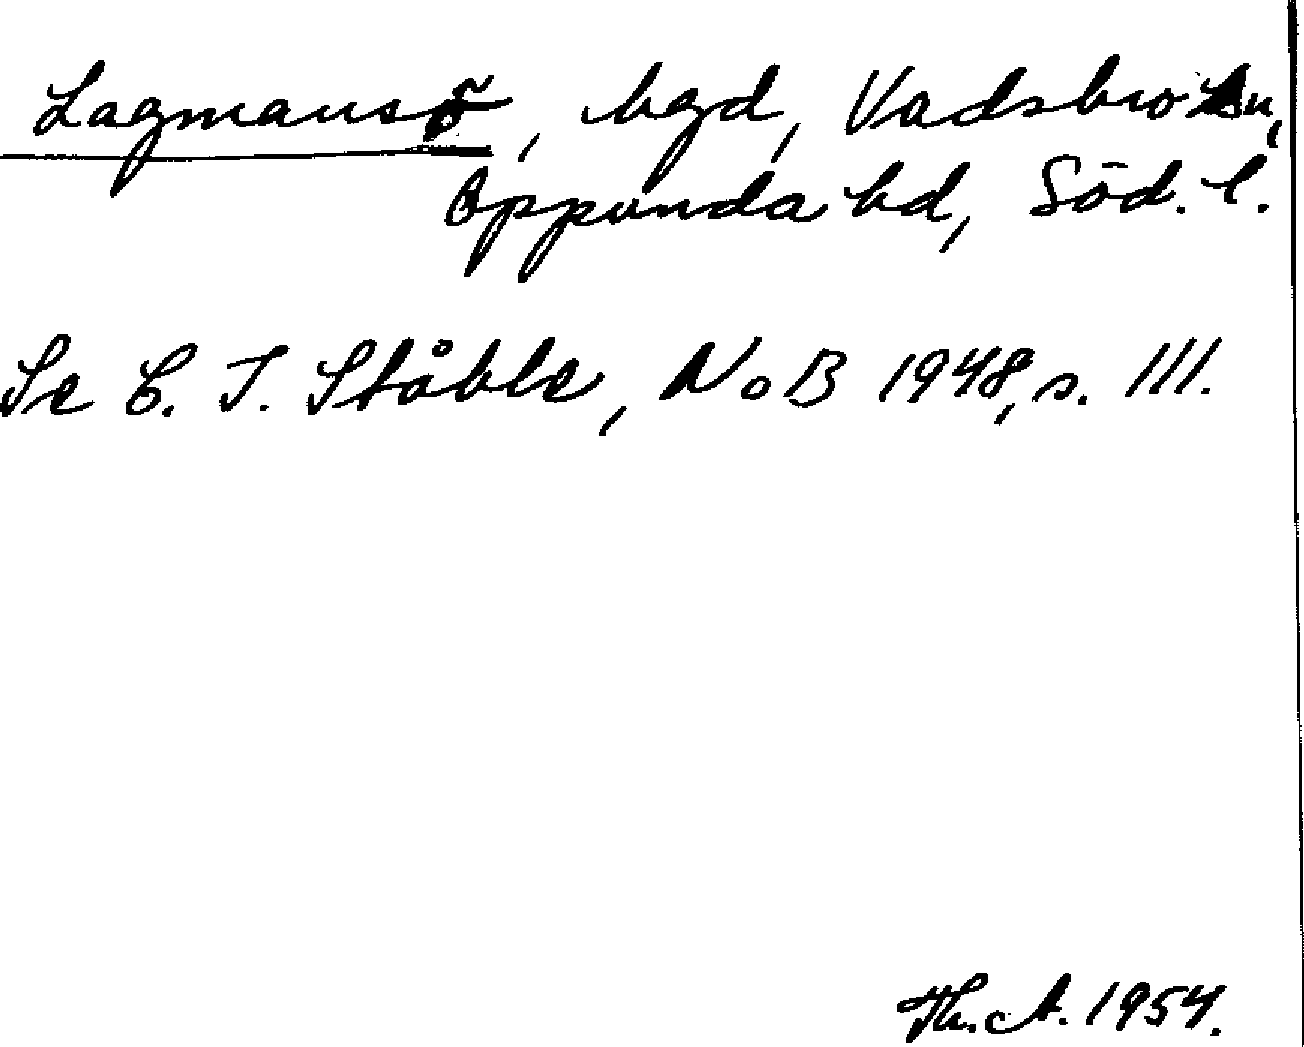 Lagmansö, hgd, Vadsbro sn,
Oppunda hd, Söd. l.
Se C. I. Ståhle, NoB 1948, s. 111.
Th. A. 1954.